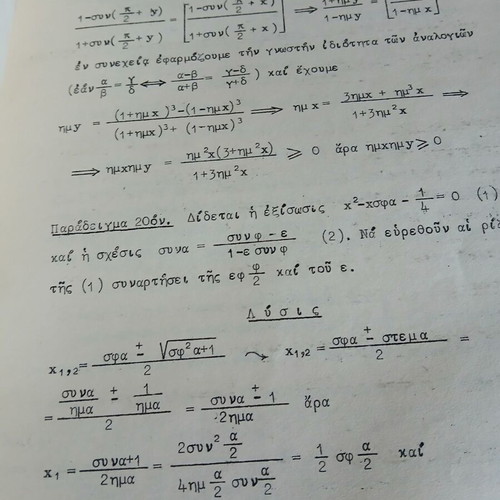 1-συν(π/2 + y) / 1+συν(π/2 + y) = [1-συν(π/2 + x) / 1+συν(π/2 + x)] ⟹ 1-ημy = [1-ημx]
ἐν συνεχείᾳ ἐφαρμόζουμε τήν γνωστήν ἰδιότητα τῶν ἀναλογιῶν
(ἐάν α/β = γ/δ ⟺ α-β/α+β = γ-δ/γ+δ ) καί ἔχουμε
ημy = (1+ημx )³-(1-ημx)³ / (1+ημx)³+ (1-ημx)³ ⟹ ημx = 3ημx + ημ³x / 1+3ημ²x ⟹
⟹ ημxημy = ημ²x(3+ημ²x) / 1+3ημ²x ⩾ 0 ἄρα ημxημy ⩾ 0
Παράδειγμα 20όν. Δίδεται ἡ ἐξίσωσις x²-xσφα - 1/4 = 0 (1)
καί ἡ σχέσις συνα = συνφ - ε / 1-ε συνφ (2). Νά εὑρεθοῦν αἱ
τῆς (1) συναρτήσει τῆς εφ φ/2 καί τοῦ ε.
Λ ύ σ ι ς
x₁,₂ = σφα ± √σφ²α+1 / 2 ⤳ x₁,₂ = σφα ± στεμα / 2 =
= συνα/ημα ± 1/ημα / 2 = συνα ± 1 / 2ημα ἄρα
x₁ = συνα+1 / 2ημα = 2συν² α/2 / 4ημ α/2 συν α/2 = 1/2 σφ α/2 καί